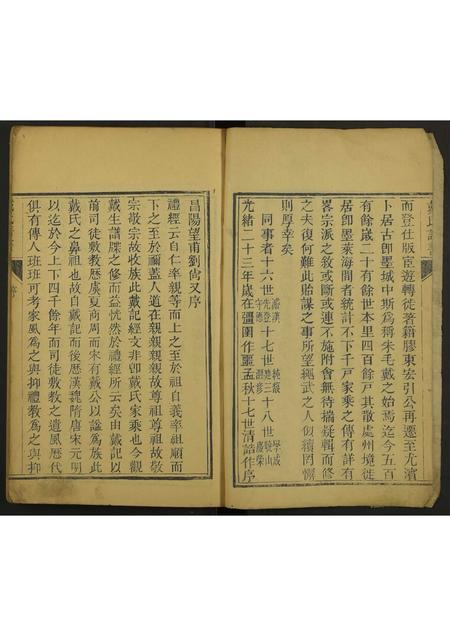 而登仕版宦遊轉徙著籍膠東宏引公再遷至尤濱
卜居古卽墨城中斯爲稱朱毛戴之始焉迄今五百
有餘歲二十有餘世本里四百餘戶其散處州境從
居卽墨萊海間者統計不下千戶家乘之傳有詳有
畧宗派之敘或斷或連不施附會無待揣疑輯而修
之夫復何難此貽謀之事所望繩武之人似續罔懈
則厚幸矣
同事者十六世 瀛漢 先登 守德 十七世 純嘏 楚三 淑修 十八世 學成 駿山 慶榮
光緒二十三年歲在彊圉作噩孟秋十七世清誥作序
昌陽望甫劉尙又序
禮經云自仁率親等而上之至於祖自義率祖順而
下之至於禰蓋人道在親親親親故尊祖尊祖故敬
宗敬宗故收族此戴記禮經文非卽戴氏家乘也今觀
戴生譜牒之修而益恍然於禮經所云矣由戴記以
前司徒敷教歷虞夏商周而宋有戴公以謚爲族此
戴氏之鼻祖也故自戴記而後歷漢魏隋唐宋元明
以迄於今上下四千餘年而司徒敷教之遺風歷代
俱有傳人班班可考家風爲之與抑禮教爲之與抑